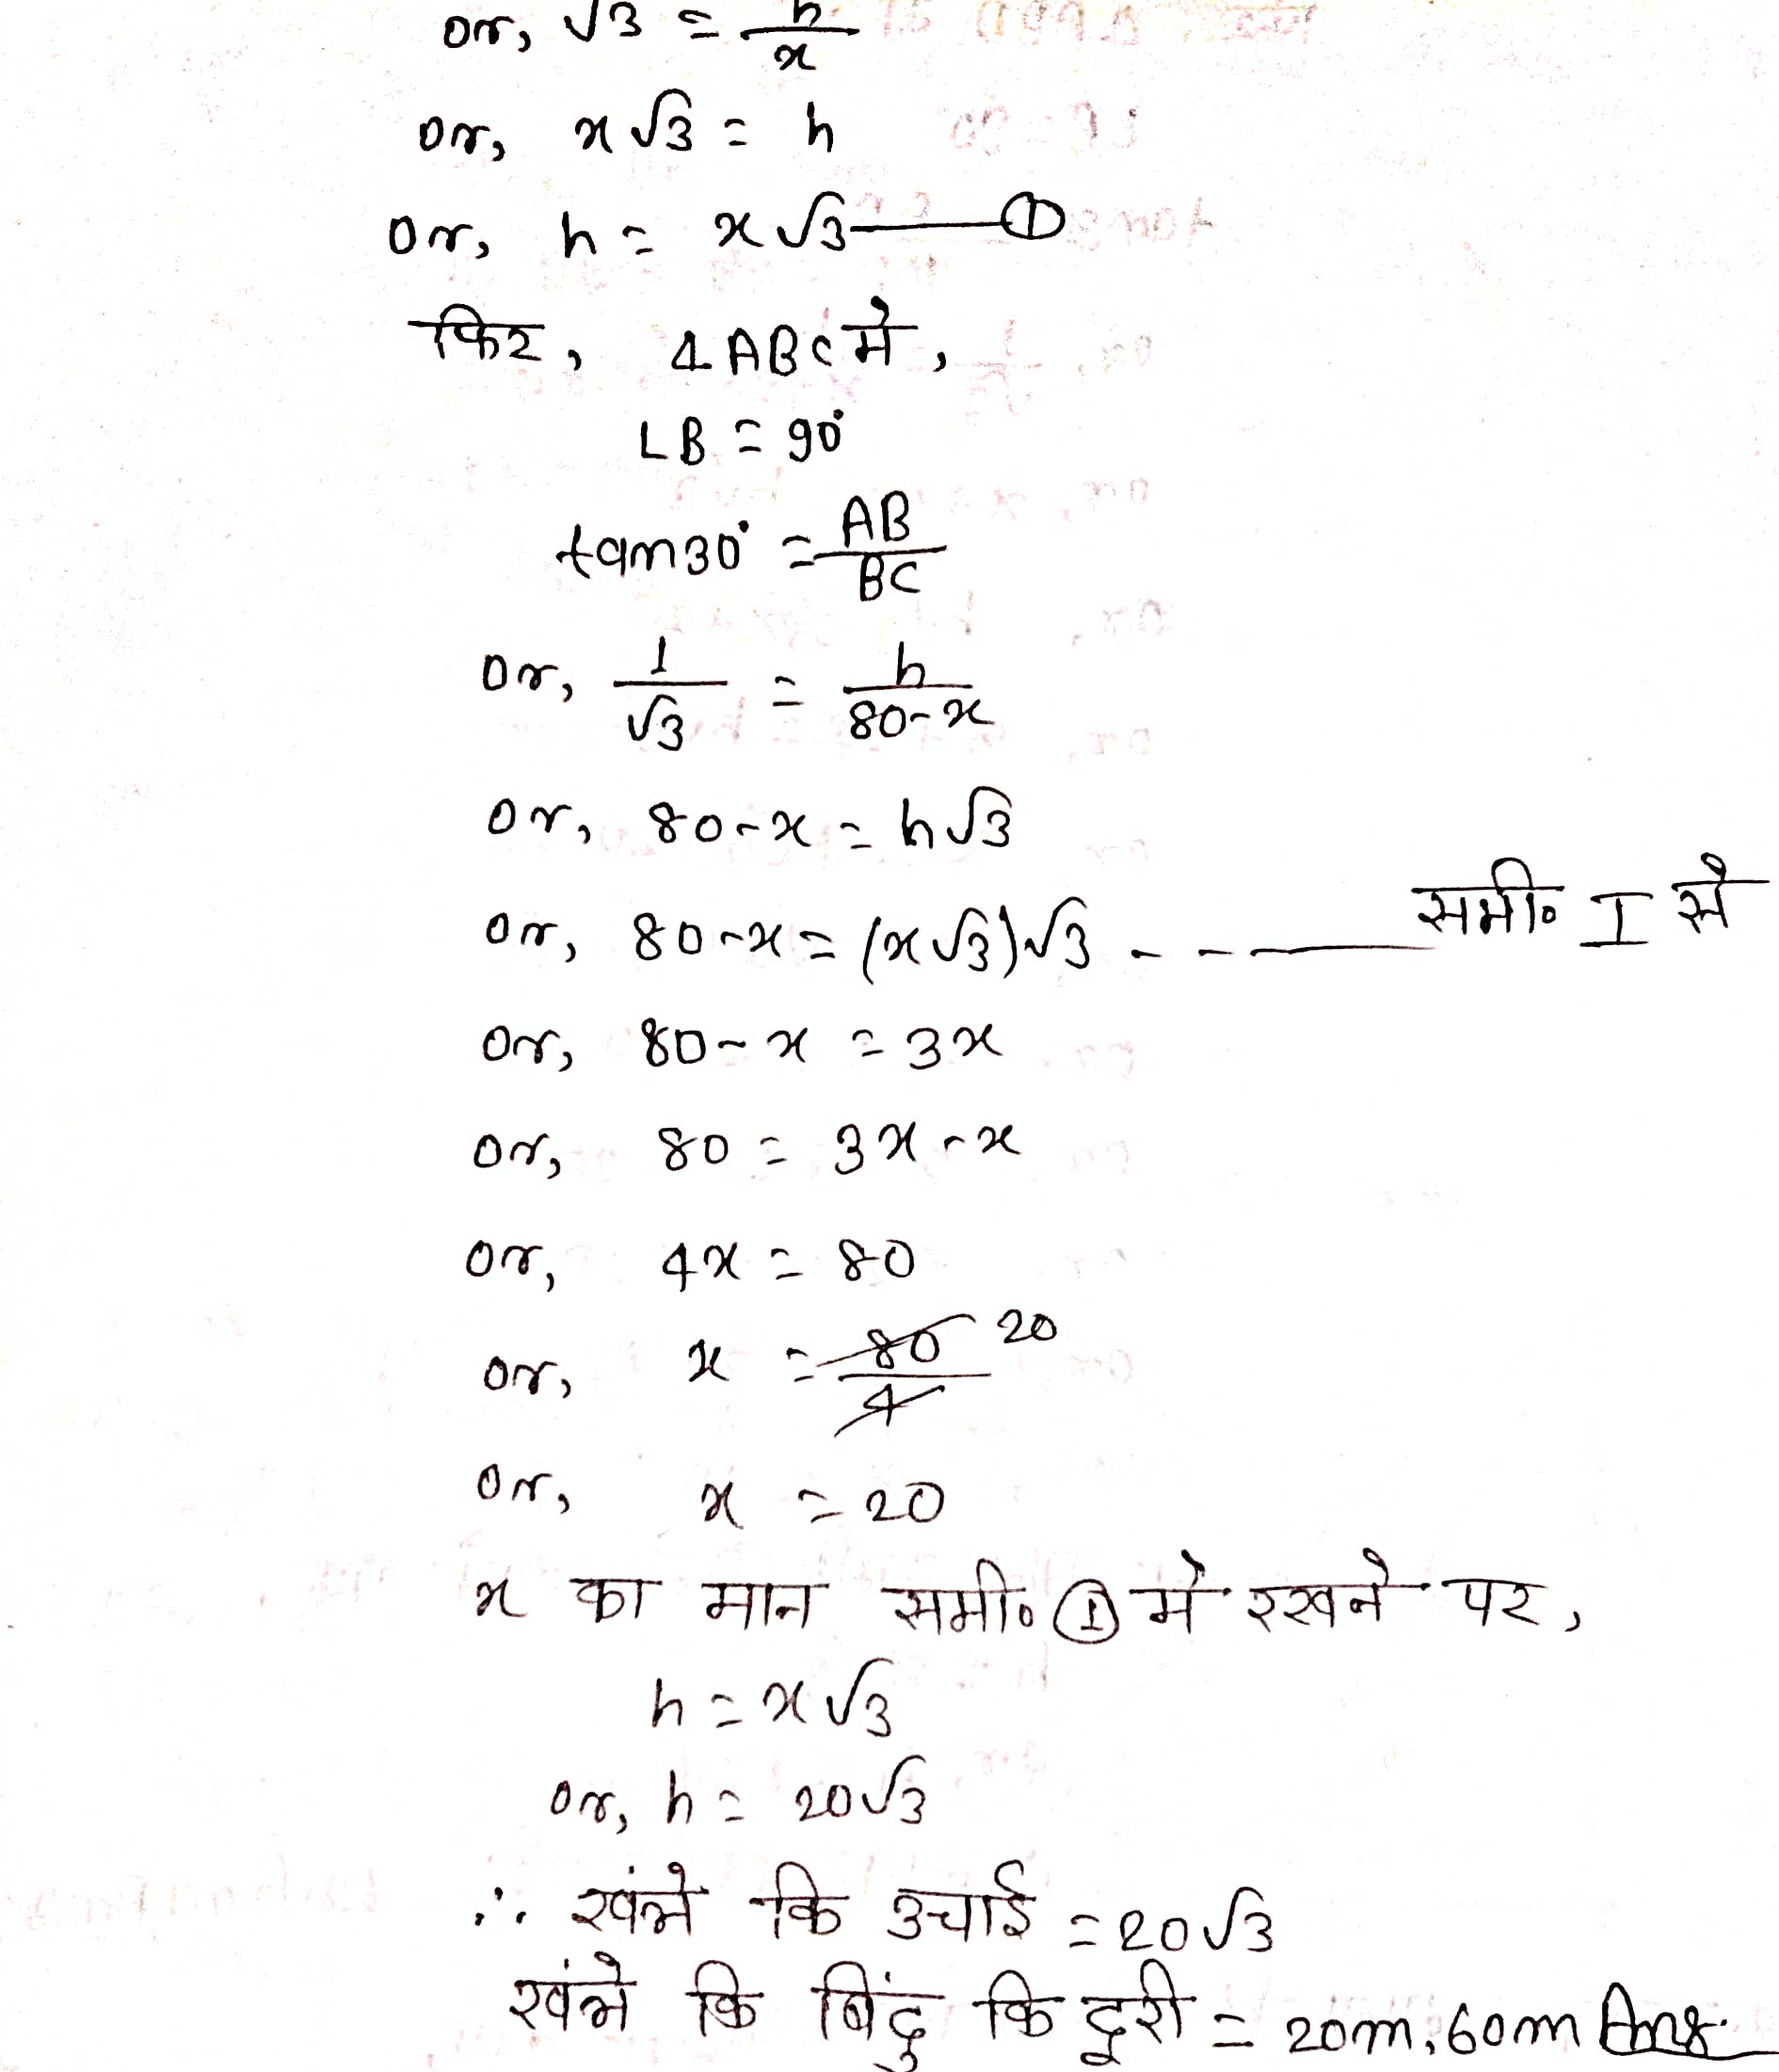 or, √3 = h/x
or, x√3 = h
or, h = x√3 —— ①
फिर, △ABC में,
∠B = 90°
tan30° = AB/BC
or, 1/√3 = h/80-x
or, 80-x = h√3
or, 80-x = (x√3)√3 - - —— समी० I से
or, 80-x = 3x
or, 80 = 3x-x
or, 4x = 80
or, x = 80/4 20
or, x = 20
x का मान समी० ① मे रखने पर,
h = x√3
or, h = 20√3
∴ खंभे कि उचाई = 20√3
खंभे कि बिंदु कि दूरी = 20m, 60m Ans.